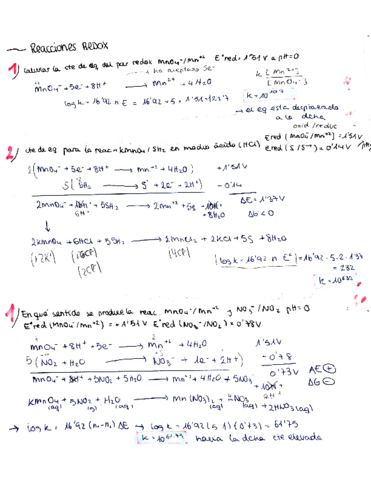 ~ Reacciones REDOX
1) Calcular la cte de eq del par redox MnO₄⁻/Mn⁺² E°red = 1'51V a pH=0
→ ha aceptado 5e⁻
MnO₄⁻ + 5e⁻ + 8H⁺ → Mn²⁺ + 4H₂O
k [Mn²⁺] / [MnO₄⁻]
log k = 16'92 n E = 16'92 · 5 · 1'51 = 127'7
→ el eq esta desplazado a la dcha
oxid/reduc
2) cte de eq para la reac KMnO₄/SH₂ en medio ácido (HCl)
Ered (MnO₄⁻/Mn⁺²) = 1'51V
Ered (S/S⁻²) = 0'14V
2(MnO₄⁻ + 5e⁻ + 8H⁺ → Mn⁺² + 4H₂O) +1'51
5(SH₂ → S + 2e⁻ + 2H⁺) -0'14
2MnO₄⁻ + 16H⁺ + 5SH₂ → 2Mn⁺² + 5S + 10H⁺ + 8H₂O ΔE = 1'37V
6H⁺
ΔG < 0
↓
2KMnO₄ + 6HCl + 5SH₂ → 2MnCl₂ + 2KCl + 5S + 8H₂O
log k = 16'92 · n E° = 16'92 · 5 · 2 · 1'37 = 232
k = 10²³²
1) En qué sentido se produce la reac. MnO₄⁻/Mn⁺² y NO₃⁻/NO₂ pH=0
E°red (MnO₄⁻/Mn⁺²) = +1'51V E°red (NO₃⁻/NO₂) = 0'78V
MnO₄⁻ + 8H⁺ + 5e⁻ → Mn⁺² + 4H₂O 1'51V
5(NO₂ + H₂O → NO₃⁻ + 1e⁻ + 2H⁺) -0'78
0'73V ΔE ⊕
MnO₄⁻ + 8H⁺ + 5NO₂ + 5H₂O → Mn⁺² + 4H₂O + 5NO₃⁻ + 10H⁺ ΔG ⊖
2H⁺
KMnO₄ (aq) + 5NO₂ (g) + H₂O → Mn(NO₃)₂ (aq) + KNO₃ (aq) + 2HNO₃ (aq)
→ log k = 16'92 (n₁·n₂) ΔE → log k = 16'92 (5·1)(0'73) = 61'75
hacia la dcha cte elevada